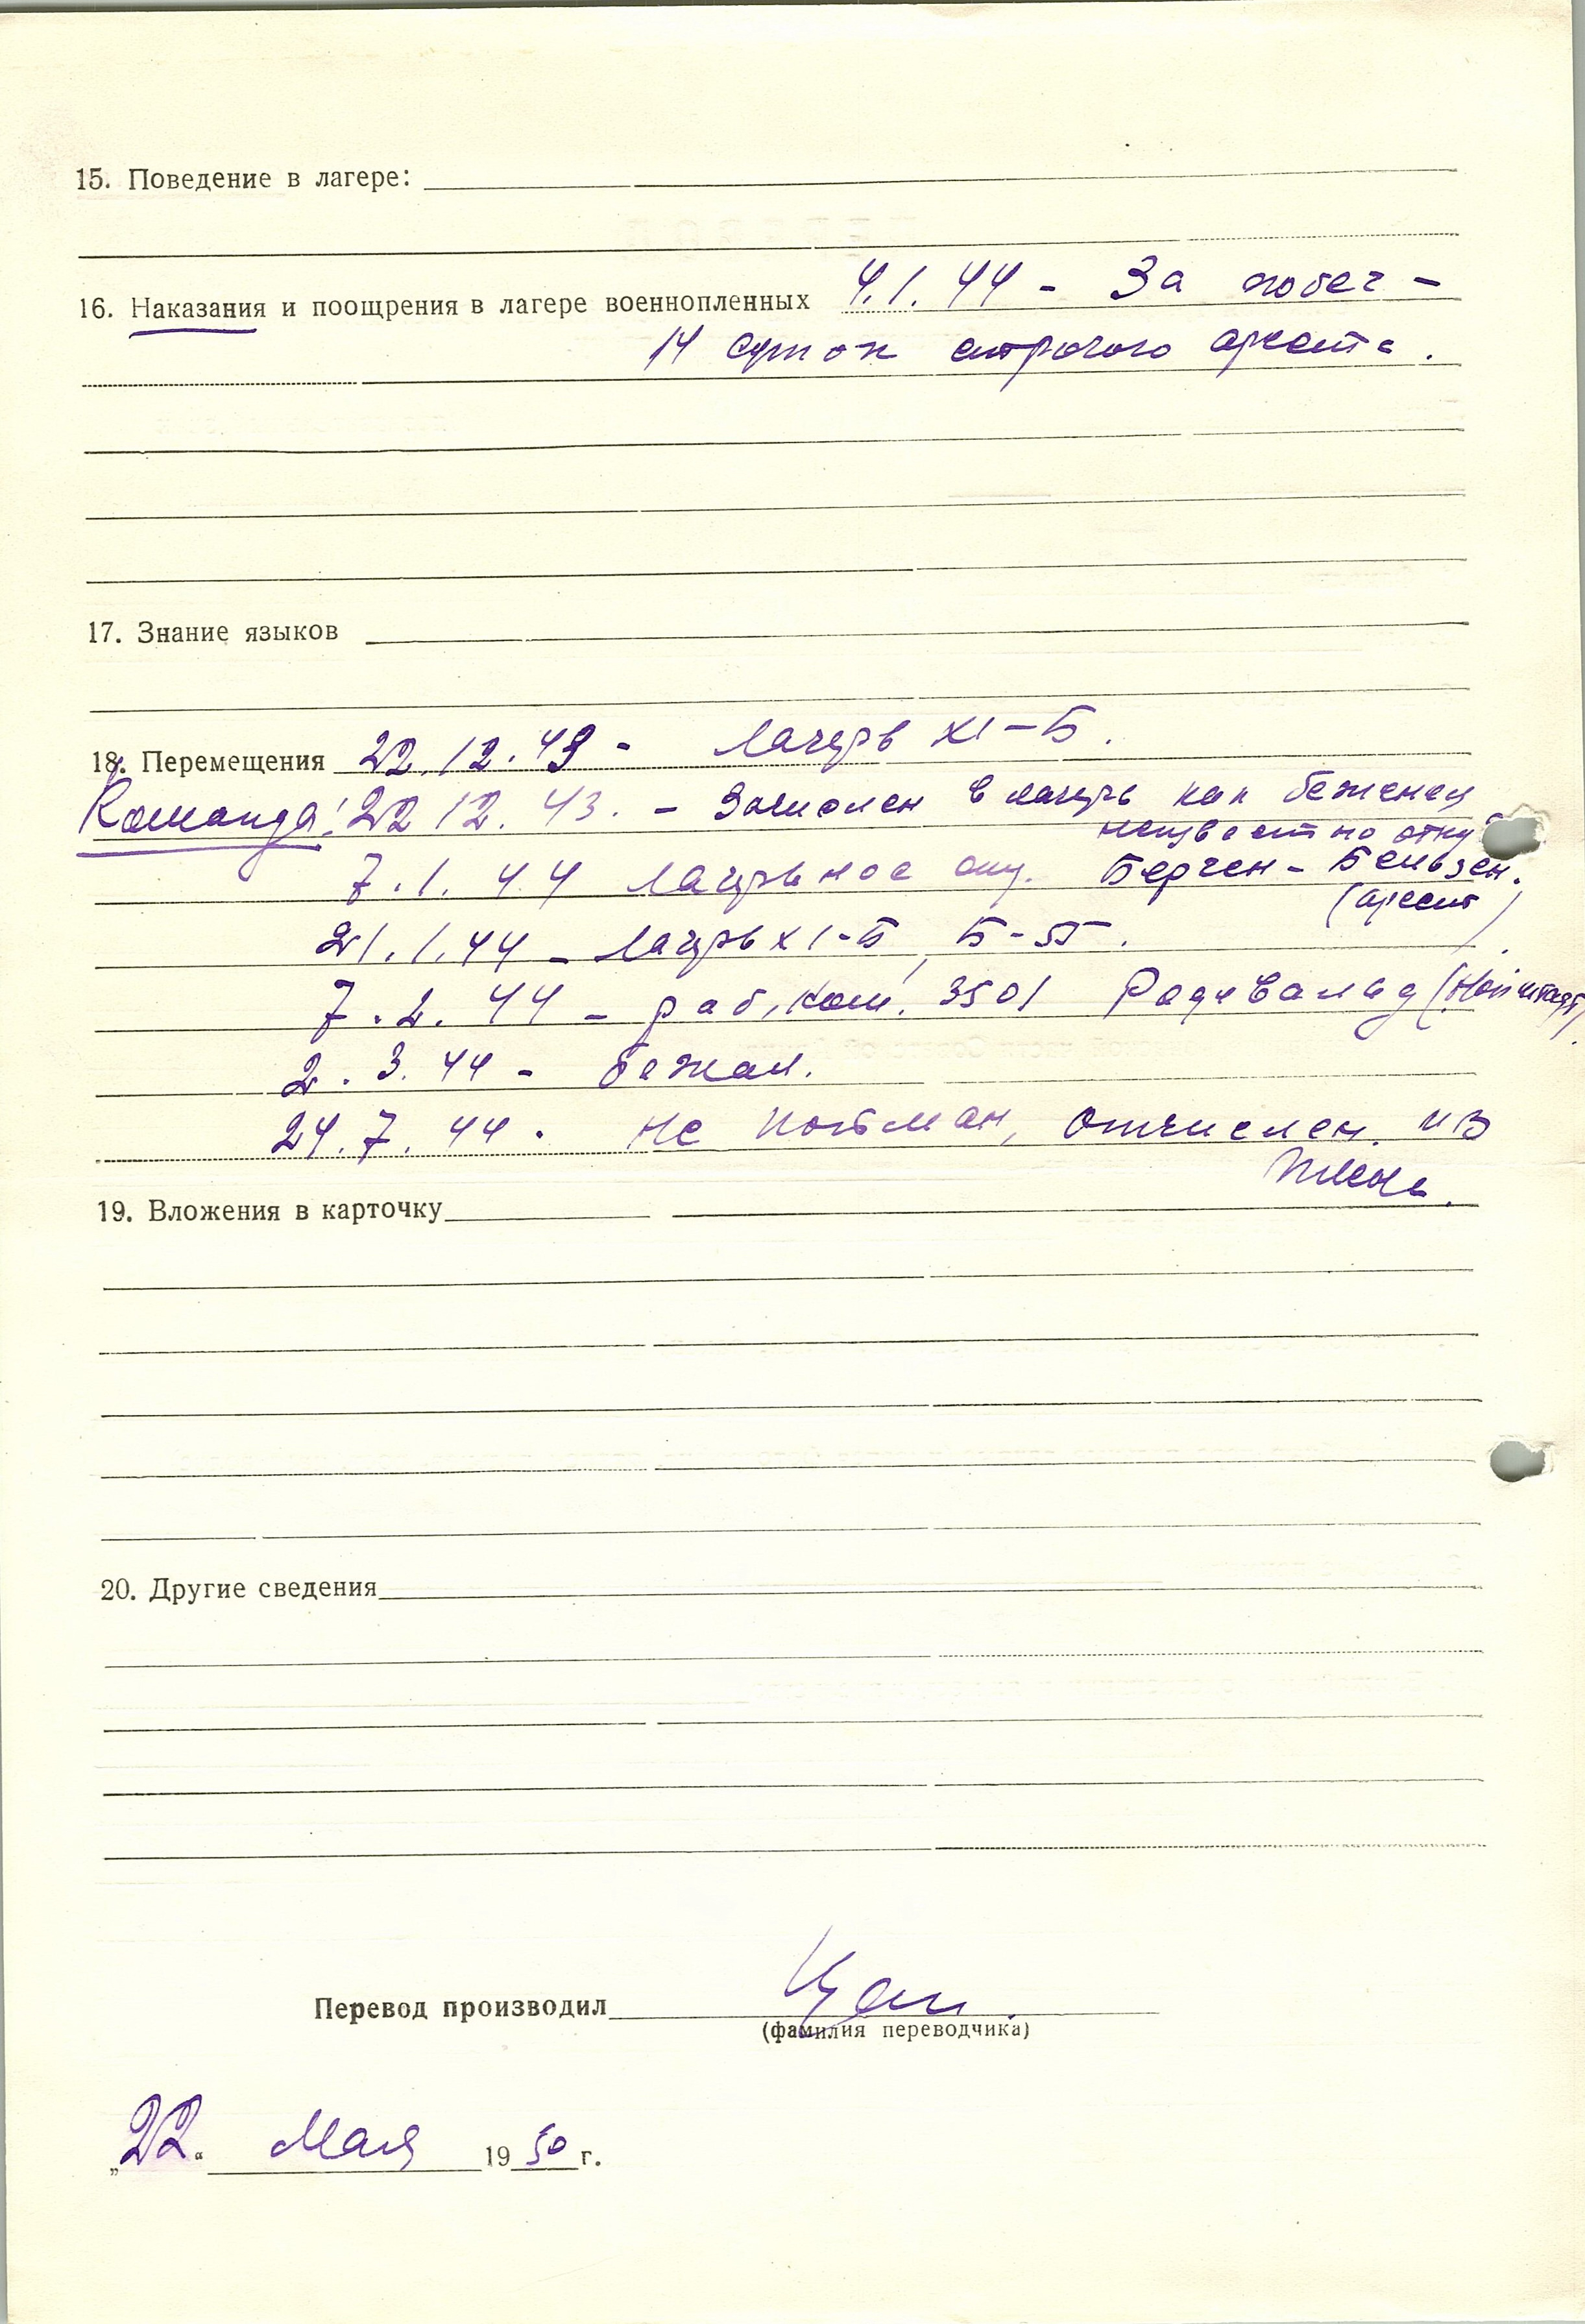 15. Поведение в лагере:
16. Наказания и поощрения в лагере военнопленных 4.1.44 - За побег -
14 суток строгого ареста.
17. Знание языков
18. Перемещения 22.12.43 - Лагерь XI-Б.
Команда: 22 12. 43. - Зачислен в лагерь как беженец
неизвестно отку
7.1.44 Лагерное Берген-Бельзен.
(арест)
21.1.44 - Лагерь XI-Б, Б-55.
7.2.44 - раб. ком. 3501 Родевальд (Нойштадт)
2.3.44 - бежал.
24.7.44. не пойман, отчислен. из
плена.
19. Вложения в карточку
20. Другие сведения
Перевод производил
(фамилия переводчика)
„22“ Мая 1950 г.